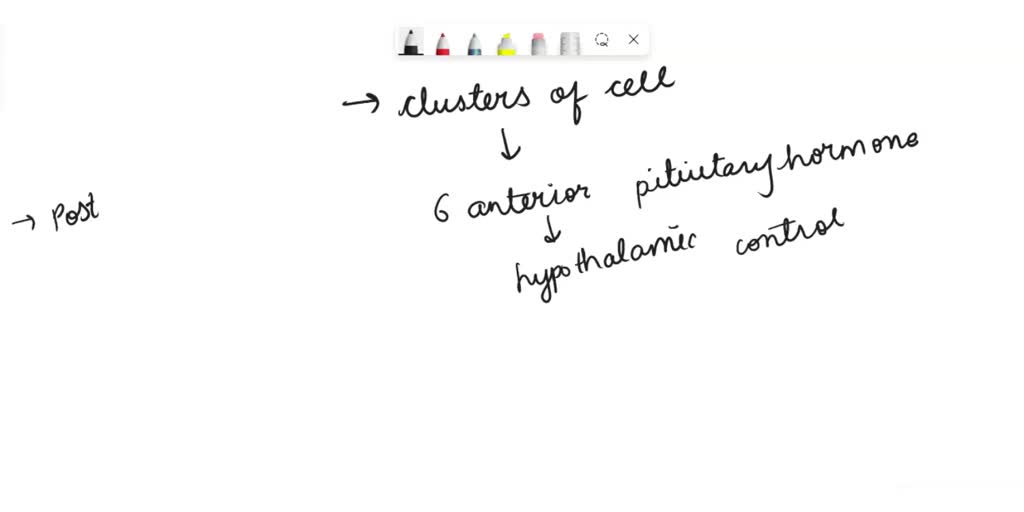 → clusters of cell
↓
6 anterior pitiutary hormone
→ post
↓
hypothalamic control